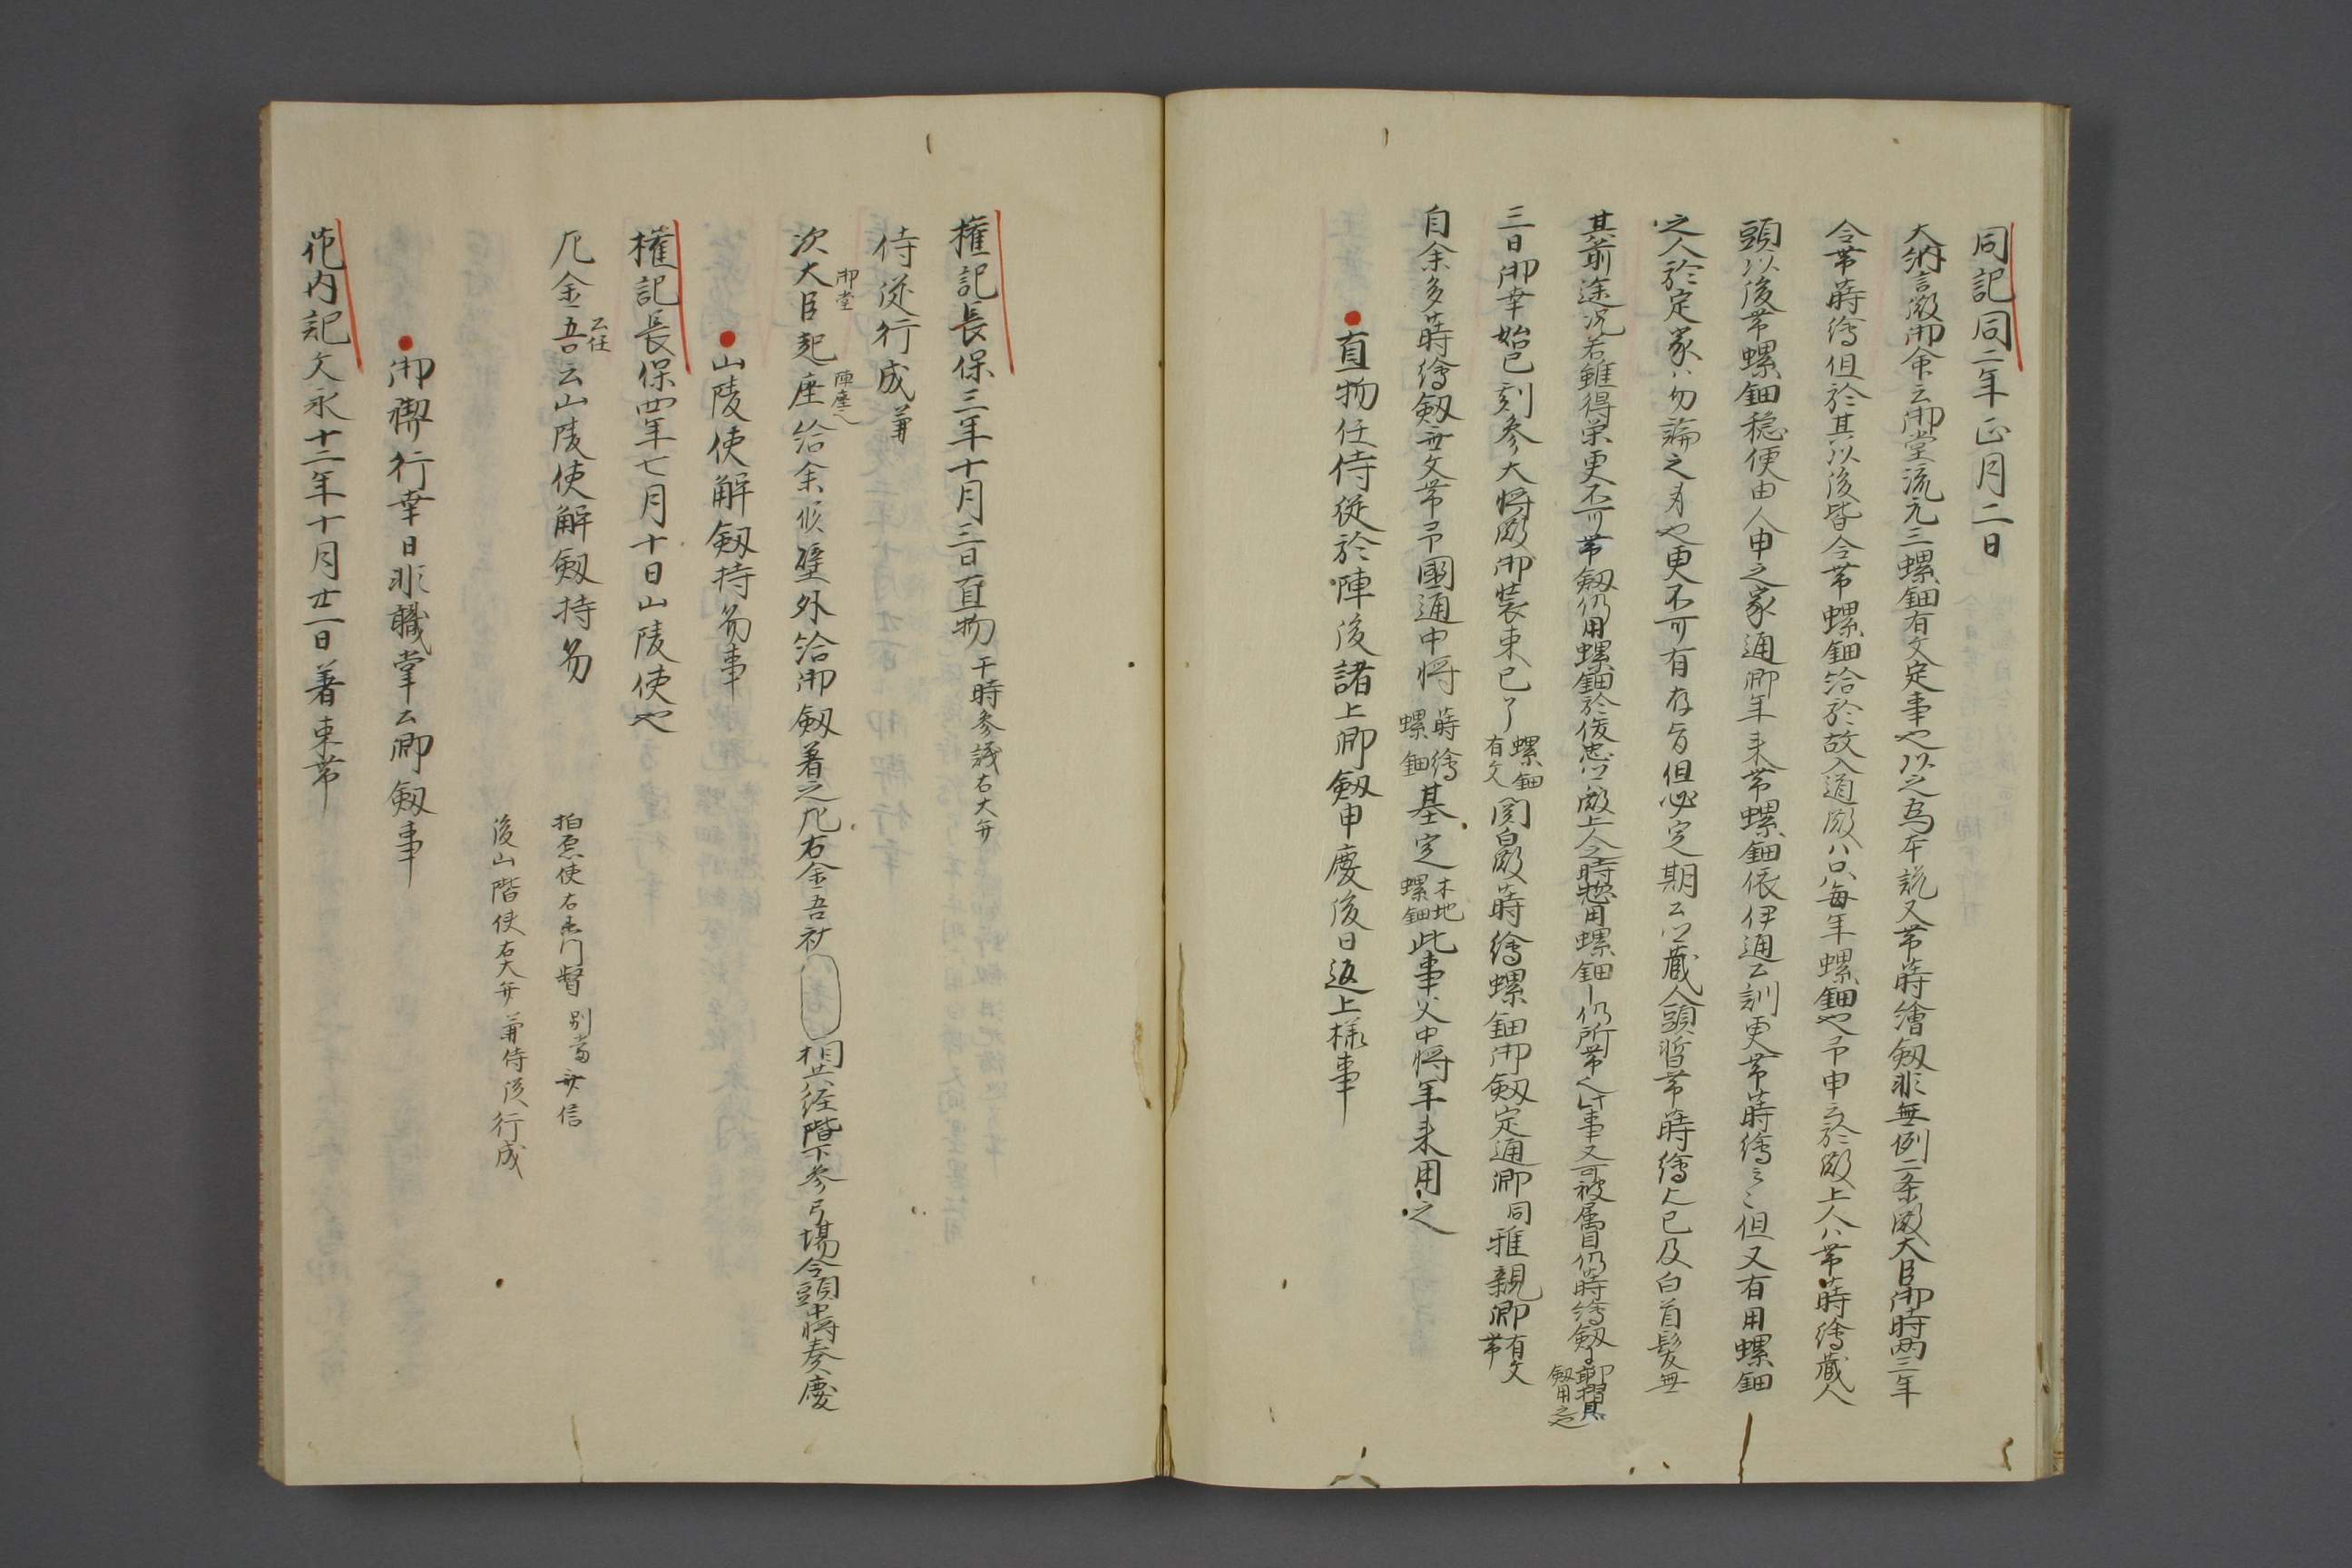 同記同二年正月二日
大納言殿御命云御堂流元三螺鈿有文定事也以之為本説又帯蒔繪釼非無例二条殿大臣御時両三年
令帯蒔繪但於其以後皆令帯螺鈿給於故入道殿八只毎年螺鈿也予申云於殿上人八帯蒔繪蔵人
頭以後帯螺鈿穏便由人申之家通卿年来帯螺鈿依伊通公訓更帯蒔繪云々但又有用螺鈿
之人於定家八勿論之身也更不可有存旨但必定期公以蔵人頭暫帯蒔繪人已及白首髪無
其前途況若雖得栄更不可帯釼仍用螺鈿於俊忠以殿上人之時愁用螺鈿仍所帯也此事又可被属目仍蒔繪釼
釼用之
三日御幸始已刻参大将殿御装束已了螺鈿有文関白殿蒔繪螺鈿御釼定通卿同雅親卿有文帯
自余多蒔繪釼無文帯予國通中将蒔繪螺鈿基定木地螺鈿此事父中将年来用之
直物任侍従於陣後諸上卿釼申慶後日返上様事
権記長保三年十月三日直物于時参議右大弁
侍従行成兼
次大臣御堂起座陣座也給余於壁外給御釼着之尼右金吾被相共経階下参弓場令頭中将奏慶
山陵使解釼持笏事
権記長保四年七月十日山陵使也
尼金吾公任云山陵使解釼持笏
柏原使右衛門督別当斉信
後山階使右大弁兼侍従行成
御禊行幸日非職掌公卿釼事
花内記文永十二年十月廿一日着束帯